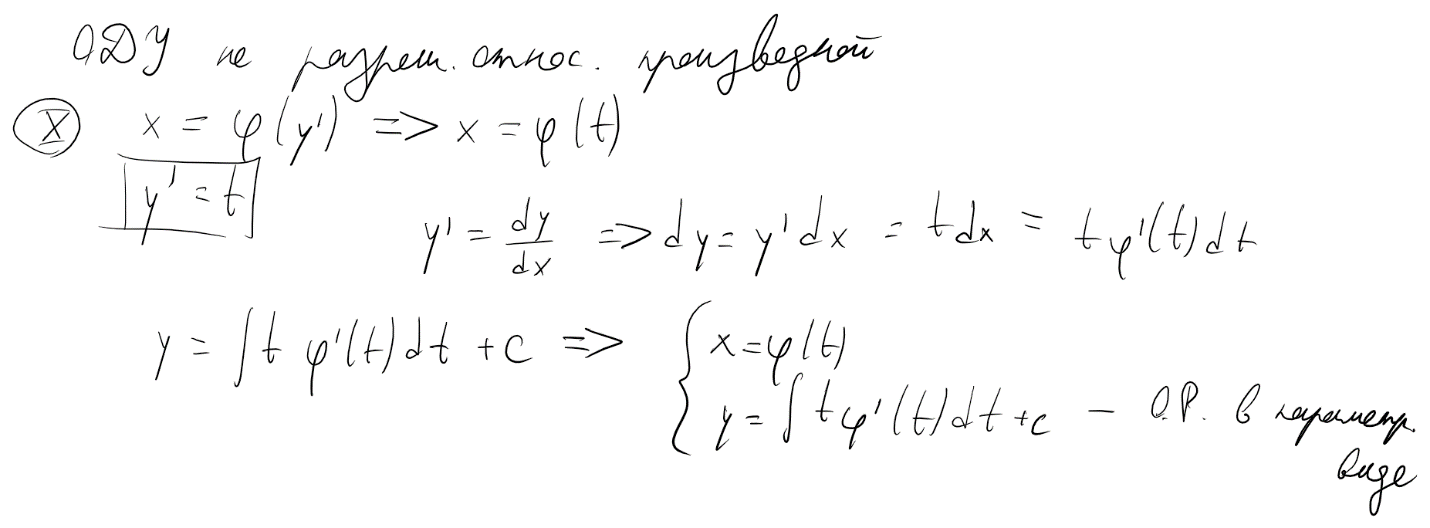 ОДУ не разреш. относ. производной
X x = φ(y') => x = φ(t)
y' = t
y' = dy/dx => dy = y'dx = tdx = tφ'(t)dt
y = ∫t φ'(t)dt + c => { x = φ(t)
y = ∫tφ'(t)dt + c – О.Р. в параметр.
виде